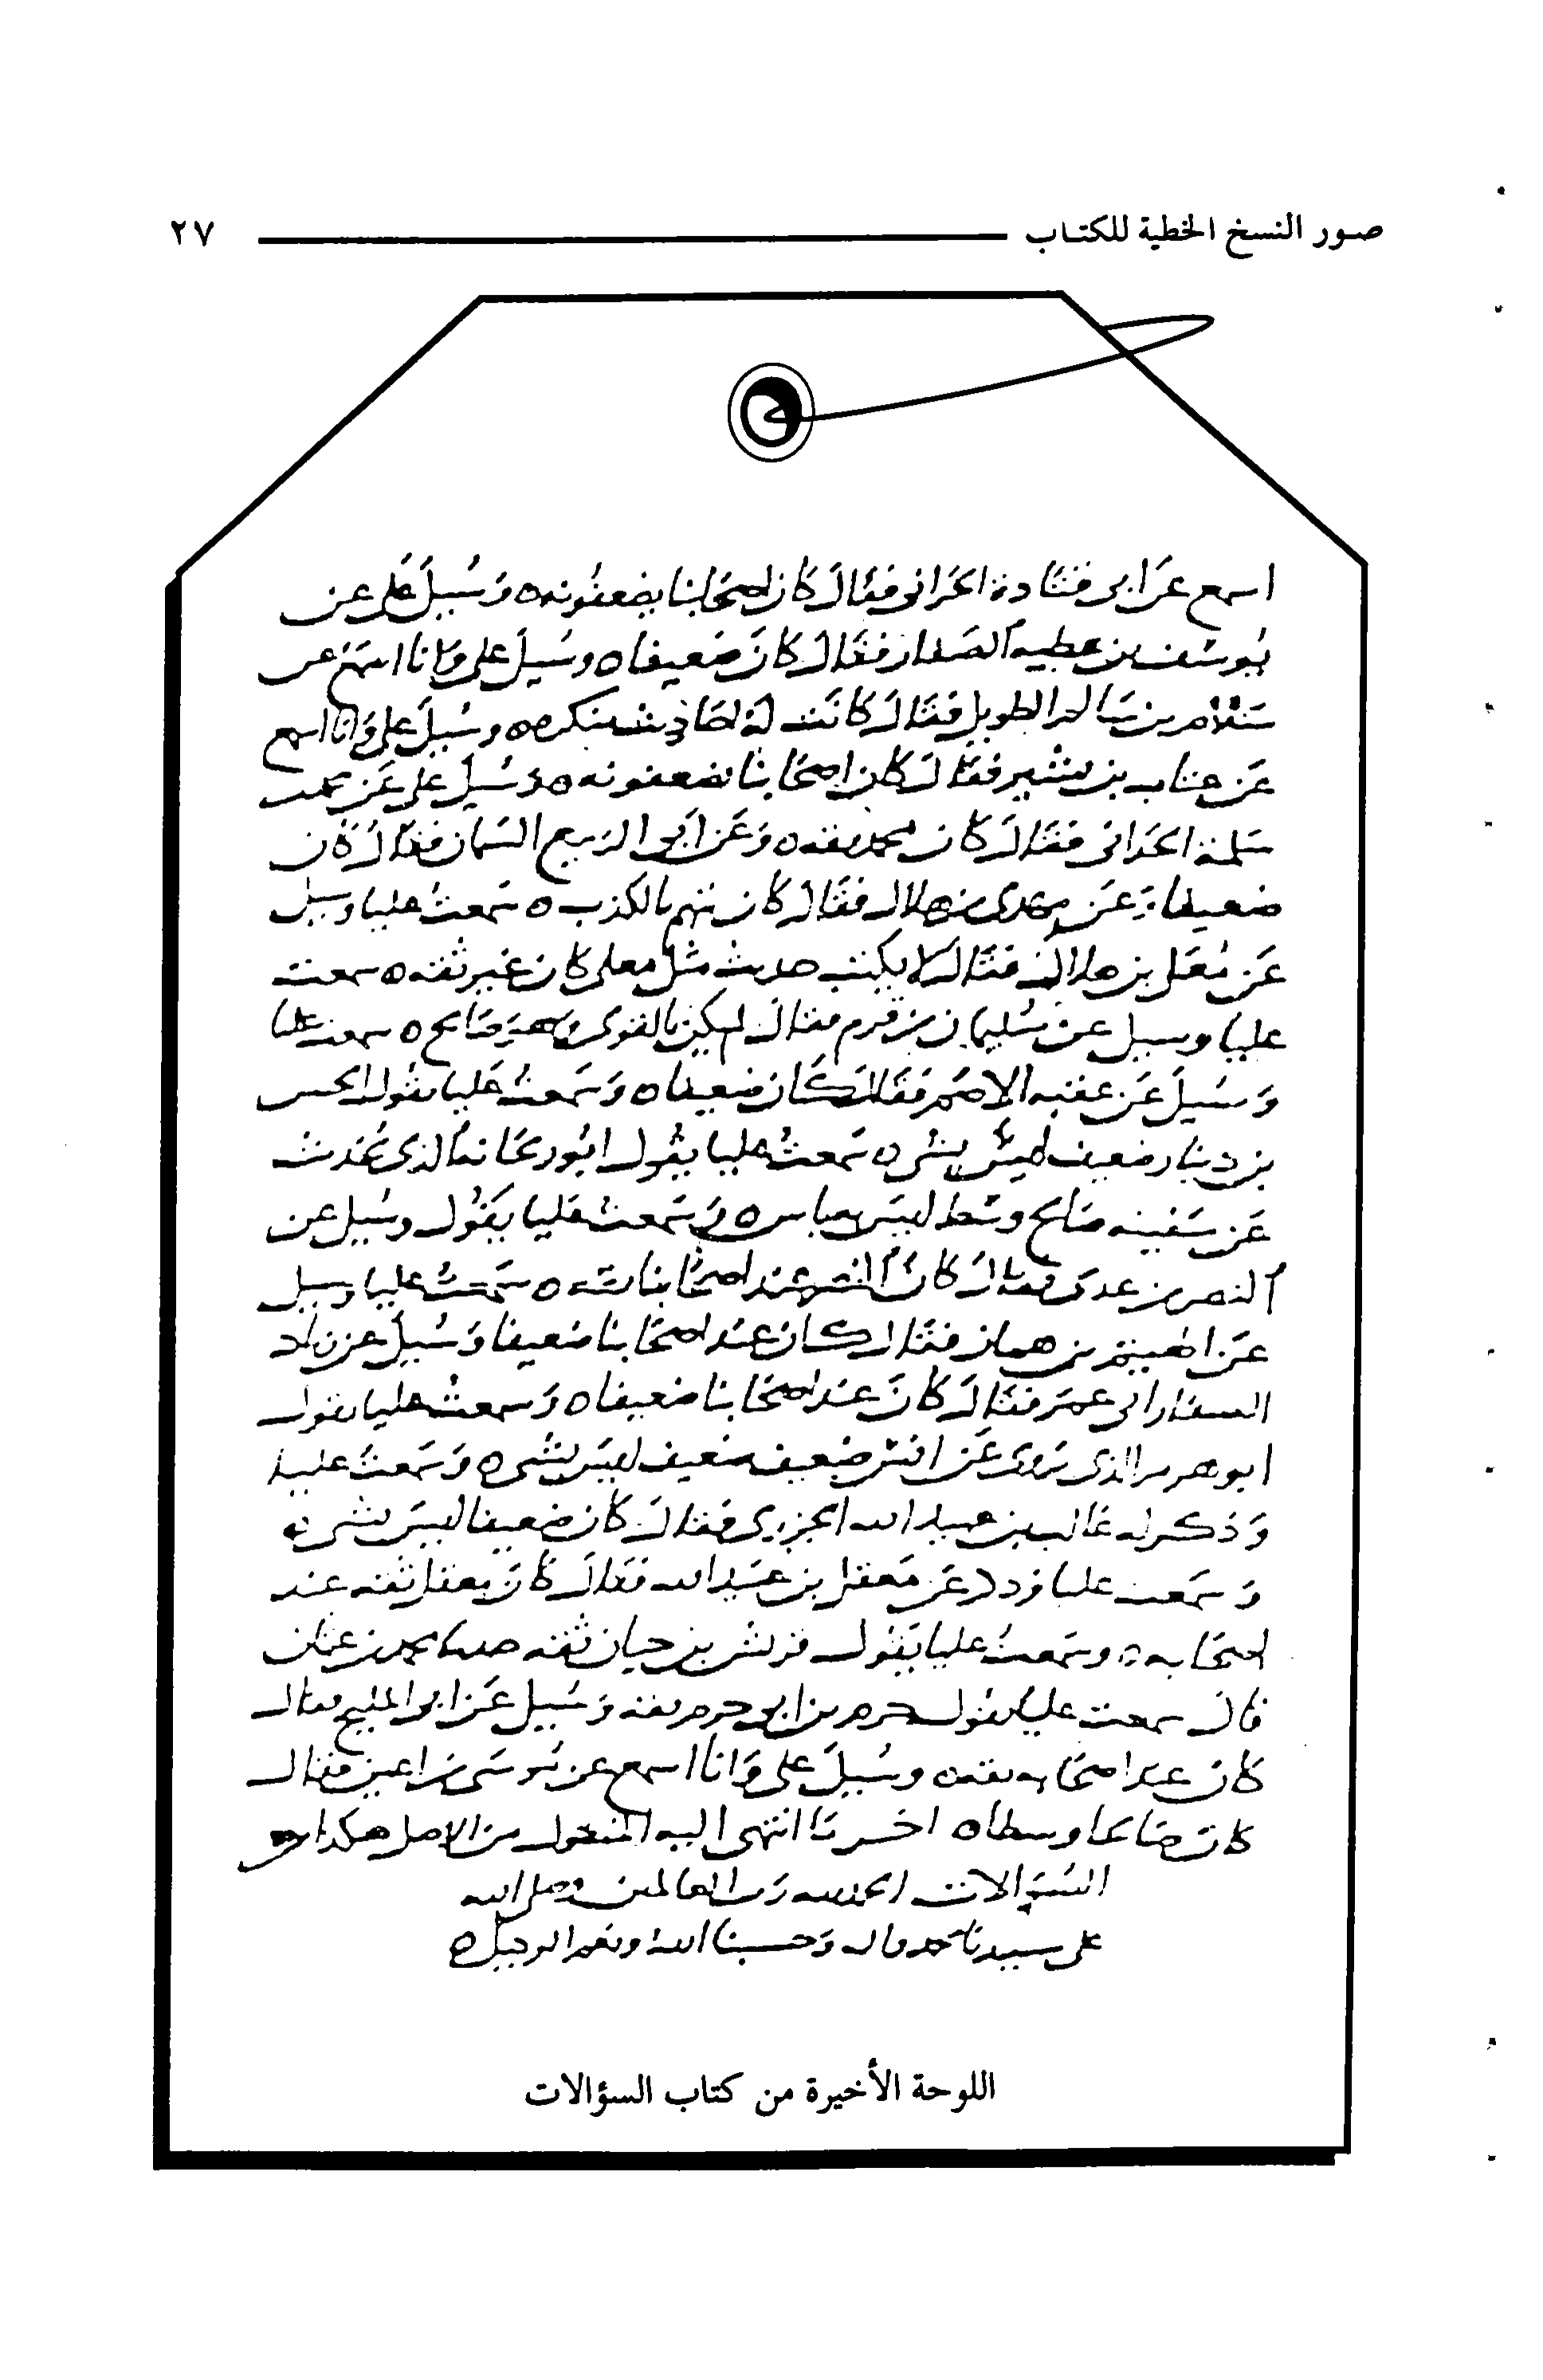 صور النسخ الخطية للكتاب ٢٧
اسمع عن ابي قتادة الحراني فقال كان اصحابنا يضعفونه وسيل علي عن
يوسف بن عطيه الصفار فقال كان ضعيفا وسيل علي وانا اسمع عن
سلام بن سالم الطويل فقال كانت له احاديث منكره وسيل علي وانا اسمع
عن عتاب بن بشير فقال كان اصحابنا يضعفونه وسيل علي عن محمد بن
سلمة الحراني فقال كان ثقه وعن ابي الربيع السمان فقال كان
ضعيفا وعن مهدي بن هلال فقال كان يتهم بالكذب سمعت عليا وسيل
عن معلى بن هلال فقال لا يكتب حديث مثل معلى كان غير ثقه سمعت
عليا وسيل عن سليمان بن قرم فقال لم يكن بالقوي وهو صالح سمعت عليا
وسيل عن عقبه الاصم فقال كان ضعيفا وسمعت عليا يقول الحسن
بن دينار ضعيف ليس بشي سمعت عليا يقول ابو ريحانه الذي يحدث
عن سفينه صالح وسط ليس به باس وسمعت عليا يقول وسيل عن
النضر بن عدي فقال كان النضر عند اصحابنا ثقه سمعت عليا وسيل
عن الهيثم بن جماز فقال كان عند اصحابنا ضعيفا وسيل عن زياد
الصفار ابي عمر فقال كان عند اصحابنا ضعيفا وسمعت عليا يقول
ابو هرمز الذي يروي عن انس ضعيف ضعيف ليس بشي وسمعت عليا
وذكر له غالب بن عبيد الله الجزري فقال كان ضعيفا ليس بشي
وسمعت عليا عن معقل بن عبيد الله فقال كان معقل ثقه عند
اصحابه وسمعت عليا يقول قريش بن حيان ثقه حدثنا محمد بن عثمان
قال سمعت عليا يقول حزم بن ابي حزم ثقه وسيل عن ابي المليح فقال
كان عند اصحابه ثقه وسيل علي وانا اسمع عن موسى بن اعين فقال
كان صالحا وسطا اخر ما انتهى اليه المنقول من الاصل هكذا من
السؤالات الحمد لله رب العالمين وصلى الله
على سيدنا محمد واله وحسبنا الله ونعم الوكيل
اللوحة الأخيرة من كتاب السؤالات